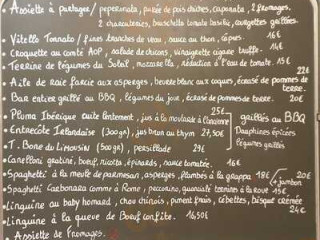 • Assiette à partager / peperonata, purée de pois chiches, caponata, 2 fromages,
2 charcuteries, bruschetta tomate basilic, courgettes grillées.
• Vitello Tonnato / fines tranches de veau, sauce au thon, câpres. 16€
• Croquette au comté AOP, salade de chicons, vinaigrette cigare truffe. 16€
• Terrine de légumes du Soleil, mozzarella, réduction d'eau de tomate. 15€
• Aile de raie farcie aux asperges, beurre blanc aux coques, écrasé de pommes de terre.
• Bar entier grillé au BBQ, légumes du jour, écrasé de pommes de terre. 20€
• Pluma Ibérique cuite lentement, jus à la moutarde à l'ancienne 25€
• Entrecôte Irlandaise (300gr), jus brun au thym 27,50€
• T. Bone du Limousin (500gr), persillade 29€
grillés au BBQ
Dauphines épicées
légumes grillés
• Canelloni gratiné, bœuf, ricotta, épinards, sauce tomatée. 16€
• Spaghetti à la meule de parmesan, asperges, flambés à la grappa 18€ / 20€ + jambon
• Spaghetti Carbonara comme à Rome, peccorino, guanciale terminé à la roue 15€
• Linguine au baby homard, chou chinois, piment frais, cébettes, bisque crémée 24€
• Linguine à la queue de Bœuf confite. 16,50€
• Assiette de Fromages.